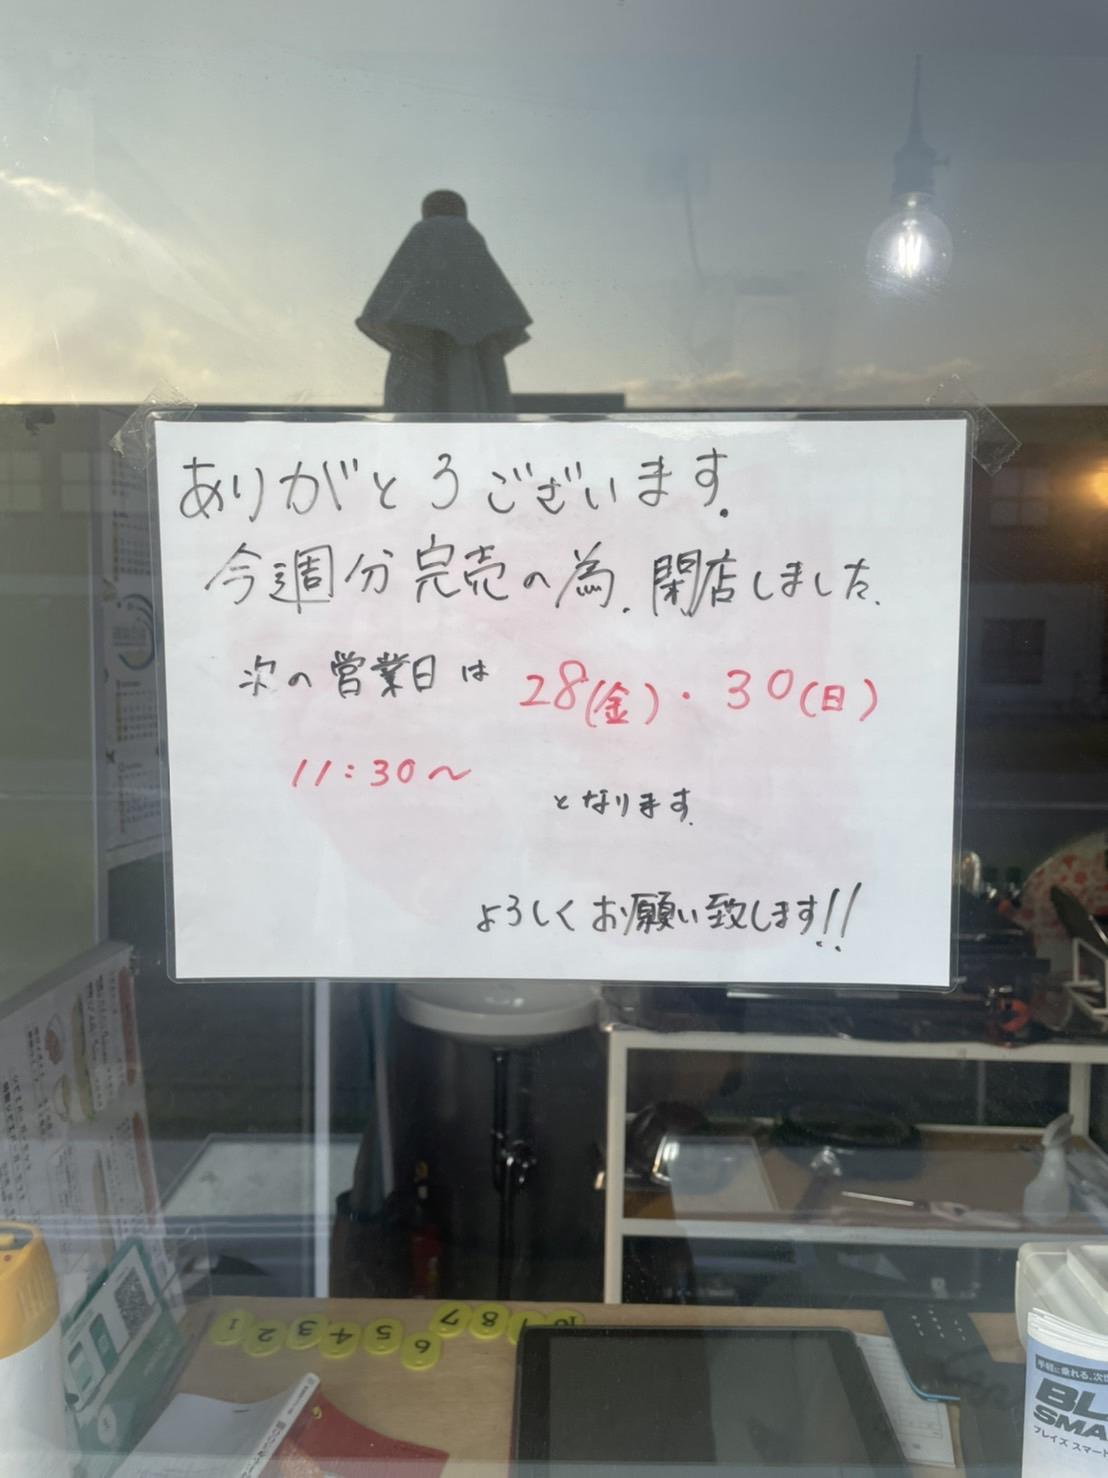 ありがとうございます.
今週分完売の為. 閉店しました.
次の営業日は 28(金)・30(日)
11:30〜
となります.
よろしくお願い致します!!
1 2 3 4 5 6 7 8 9 10
手軽に乗れる、次世
BL
SMA
ブレイズ スマート